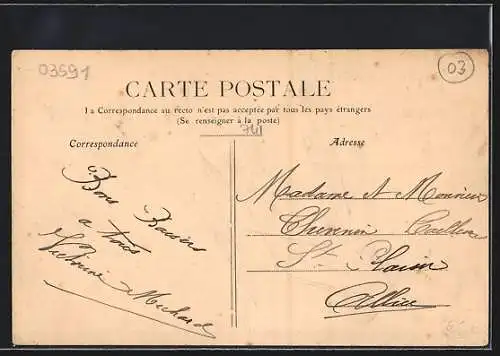 03591
03
CARTE POSTALE
La Correspondance au recto n'est pas acceptée par tous les pays étrangers
(Se renseigner à la poste)
741
Correspondance
Adresse
Bons Baisers
a tous
Michard
Madame et Monsieur
Thevenin
St Plaisir
Allier